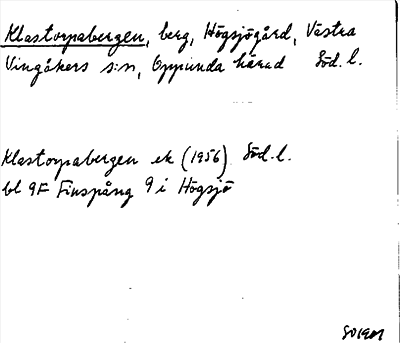 Klastorpabergen, berg, Högsjögård, Västra
Vingåkers s:n, Oppunda härad Söd. l.
Klastorpabergen ek (1956) Söd. l.
bl 9F Finspång 9 i Högsjö